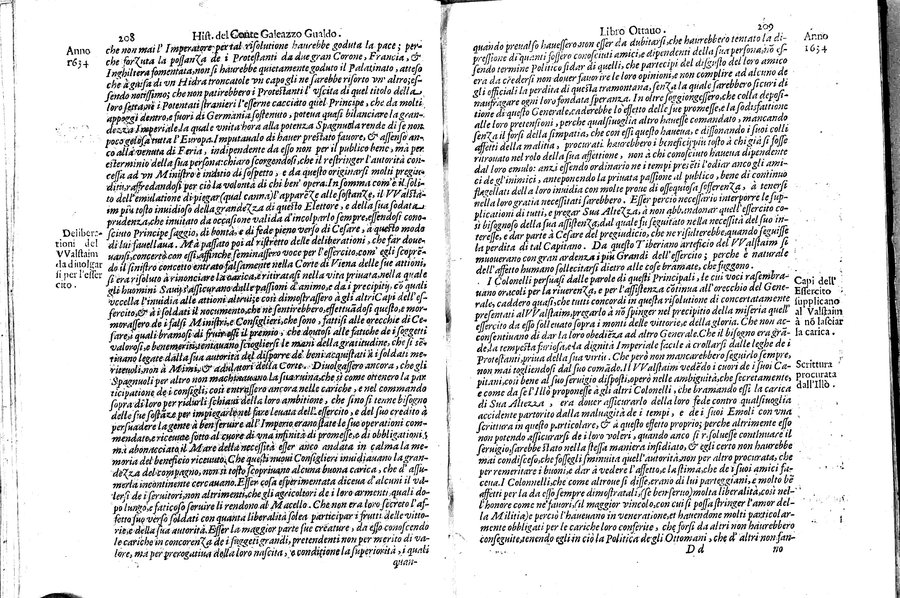 208 Hist. del Conte Galeazzo Gualdo.
Anno
1634
che non mai l' Imperatore per tal risolutione haurebbe goduta la pace; per-
che forzuta la possanza de i Protestanti da due gran Corone, Francia, &
Inghiltera fomentata, non si haurebbe quietamente goduto il Palatinato, atteso
che à guisa di vn Hidra troncatole vn capo gli ne sarebbe risorto vn altro; es-
sendo notissimo; che non patirebbero i Protestanti l' vscita di quel titolo della
loro setta, ne i Potentati stranieri l' esserne cacciato quel Principe, che da molti
appoggi dentro, e fuori di Germania sostenuto, poteua quasi bilanciare la gran-
dezza Imperiale, la quale vnita hora alla potenza Spagnuola rende di se non
poco gelosa tutta l' Europa. Imputaualo di hauer prestato fauore, & assenso an-
co alla venuta di Feria, independente da esso non per il publico bene, ma per
esterminio della sua persona: chiaro scorgendosi, che il restringer l' autorità con-
cessa ad vn Ministro è inditio di sospetto, e da questo originarsi molti pregiu-
ditij, raffredandosi per ciò la volontà di chi ben' opera. In somma com'è il soli-
to dell' emulatione di piegar (qual canna) l'apparēze alle sostanze, il VValstai-
m più tosto inuidioso della grandezza di questo Elettore, e della sua sodata
prudenza, che inuitato da occasione valida d' incolparlo sempre, essendosi cono-
sciuto Principe saggio, di bontà, e di fede pieno verso di Cesare, à questo modo
di lui fauellaua. Mà passato poi al ristretto delle deliberationi, che far doue-
Delibera-
tioni del
VValstaim
da diuolgar-
si per l'esser
cito.
uansi, concertò con essi, affinche seminassero voce per l' essercito, com' egli scopré-
do il sinistro concetto entrato falsamente nella Corte di Viena delle sue attioni,
si era risoluto à rinonciare la carica, e ritiratasi nella vita priuata, nella quale
gli huomini Sauij s' assicurano dalle passioni d' animo, e da i precipitij, cō quali
vccella l' inuidia alle attioni altrui; e così dimostrassero à gli altri Capi dell' es-
sercito, & à i soldati il nocumento, che ne sentirebbero, effettuādosi questo, e mor-
morassero de i falsi Ministri, e Consiglieri, che sono, fattisi alle orecchie di Ce-
sare, i quali bramosi di fruir essi il premio, che douutosi alle fatiche de i soggetti
valorosi, e benemeriti, tentauano sciogliersi le mani della gratitudine, che si té-
niano legate dalla sua autorità del disporre de' beni acquistati à i soldati me-
riteuoli, non à Mimi, & adulatori della Corte. Diuolgassero ancora, che gli
Spagnuoli per altro non machinauano la sua ruina, che sì come otenero la par-
ticipatione de i consigli, così entrassero ancora nelle cariche, e nel commando
sopra di loro per ridurli schiaui della loro ambitione, che sino si tenne bisogno
delle sue sostāze per impiegarle nel fare leuata dell' essercito, e del suo credito à
persuadere la gente à ben seruire all' Imperio erano state le sue operationi com-
mendate, e riceuute sotto al cuore di vna infinità di promesse, e di obbligationi,
mà abonacciato il Mare della necessità esser anco andata in calma la me-
moria del beneficio riceuuto, Che quelli nuoui Consiglieri inuidiauano la gran-
dezza del compagno, non sì tosto scopriuano alcuna buona carica, che d' assu-
merla incontinente cercauano. Esser cosa esperimentata diceua d' alcuni il va-
lersi de i seruitori, non altrimenti, che gli agricoltori de i loro armenti, quali do-
po lungo, e faticoso seruire li rendono al Macello. Che non era loro secreto l' af-
fetto suo verso soldati con quanta liberalità solea participar i frutti delle vitto-
rie, e dell' autorità. Esser la maggior parte sue creature, da esso conoscendo
le cariche in concorenza de i soggetti grandi, pretendenti non per merito di va-
lore, ma per prerogatiua della loro nascita, e conditione la superiorità, i quali
quan-
Libro Ottauo. 209
Anno
1634
quando preualso hauessero non esser da dubitarsi, che haurebbero tentata la di-
pressione di quanti fossero conosciuti amici, e dipendenti della sua persona, nō es-
sendo termine Politico fidar di quelli, che partecipi del disgusto del loro amico
era da credersi non douer fauorire le loro opinioni, e non complire ad alcuno de
gli officiali la perdita di questa tramontana, senza la quale sarebbero sicuri di
naufragare ogni loro fondata speranza. In oltre soggiongessero, che colla deposi-
tione di questo Generale, caderebbe lo effetto delle sue promesse, e la sodisfattione
alle loro pretensioni, perche qualsiuoglia altro hauesse comandato, mancando
senza il forsi della simpatia, che con essi questo haueua, e dissonando i suoi colli
affetti della malitia, procurati haurebbero i beneficij più tosto à chi già si fosse
ritrouato nel rolo della sua affettione, non à chi conosciuto haueua dipendente
dal loro emulo: anzi essendo ordinario ne i tempi preséti l' odiar anco gli ami-
ci de gl' inimici, anteponendo la priuata passione al publico, bene di continuo
flagellati della loro inuidia con molte proue di ossequiosa sofferenza, à tenersi
nella loro gratia necessitati sarebbero. Esser perciò necessario interporre le sup-
plicationi di tutti, e pregar Sua Altezza, à non abbandonar quell' essercito co-
sì bisognoso della sua assistenza, dal quale fù seguitato nella necessità del suo in-
teresse, e dar parte à Cesare del pregiudicio, che ne risulterebbe, quando seguisse
la perdita di tal Capitano. Da questo Tiberiano arteficio del VValstaim si
muouerano con gran ardenza i più Grandi dell' essercito; perche è naturale
dell' affetto humano sollecitarsi dietro alle cose bramate, che fuggono.
I Colonelli persuasi dalle parole di questi Grandi, le cui voci rasembra-
Capi dell'
Essercito
supplicano
al Valstaim
à nō lasciar
la carica.
uano oracoli per la riuerenza, e per l' assistenza cōtinua all' orecchio del Gene-
rale, caddero quasi, che tutti concordi in questa risolutione di concertatamente
presentati al VValstaim, pregarlo à nō spinger nel precipitio della miseria quell'
essercito da esso solleuato sopra i monti delle vittorie, e della gloria. Che non ac-
consentiuano di dar la loro obedienza ad altro Generale. Che il bisogno era grā-
de, la tempesta furiosa, e la dignità Imperiale facile à crollarsi dalle leghe de i
Protestanti, priua della sua virtù. Che però non mancarebbero seguirlo sempre,
non mai togliendosi dal suo comādo. Il VValstaim vedēdo i cuori de i suoi Ca-
Scrittura
procurata
dall'Illò.
pitani, così bene al suo seruigio disposti, operò nelle ambiguità, che secretamente,
e come da sè l' Illò proponesse à gli altri Colonelli, che bramando essi la carica
di Sua Altezza, era douer assicurarlo della loro fede contro qualsiuoglia
accidente partorito dalla maluagità de i tempi, e de i suoi Emoli con vna
scrittura in questo particolare, & à questo effetto proprio; perche altrimenti esso
non potendo assicurarsi de i loro voleri, quando anco si risoluesse continuare il
seruigio, sarebbe stato nella stessa maniera insidiato, & egli certo non haurebbe
mai condisceso, che fossegli sminuita quell' autorità, non per altro procurata, che
per remeritare i buoni, e dar à vedere l' affetto, e la stima, che de i suoi amici fa-
ceua. I Colonnelli, che come altroue si disse, erano di lui parteggiani, e molto bē
affetti per la da esso sempre dimostratali, (se ben seruo) molta liberalità, così nel-
l' honore come ne fauori, (il maggior vincolo, con cui si possa stringer l' amor del-
la Militia) e perciò l' haueuano in veneratione, hauendone molti particolar-
mente obbligati per le cariche loro conferite, che forsi da altri non haurebbero
conseguite, tenendo egli in ciò la Politica de gli Ottomani, che d' altri non fan-
D d no